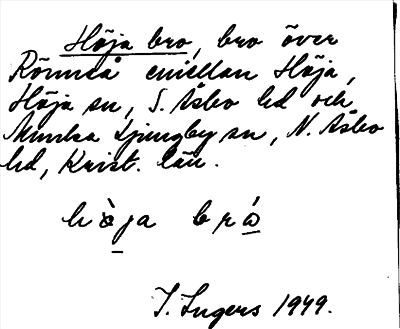 Höja bro, bro över
Rönneå emellan Höja,
Höja sn, S. Åsbo hd och
Munka Ljungby sn, N. Åsbo
hd, Krist. län.
hòja bró
I. Ingers 1949.